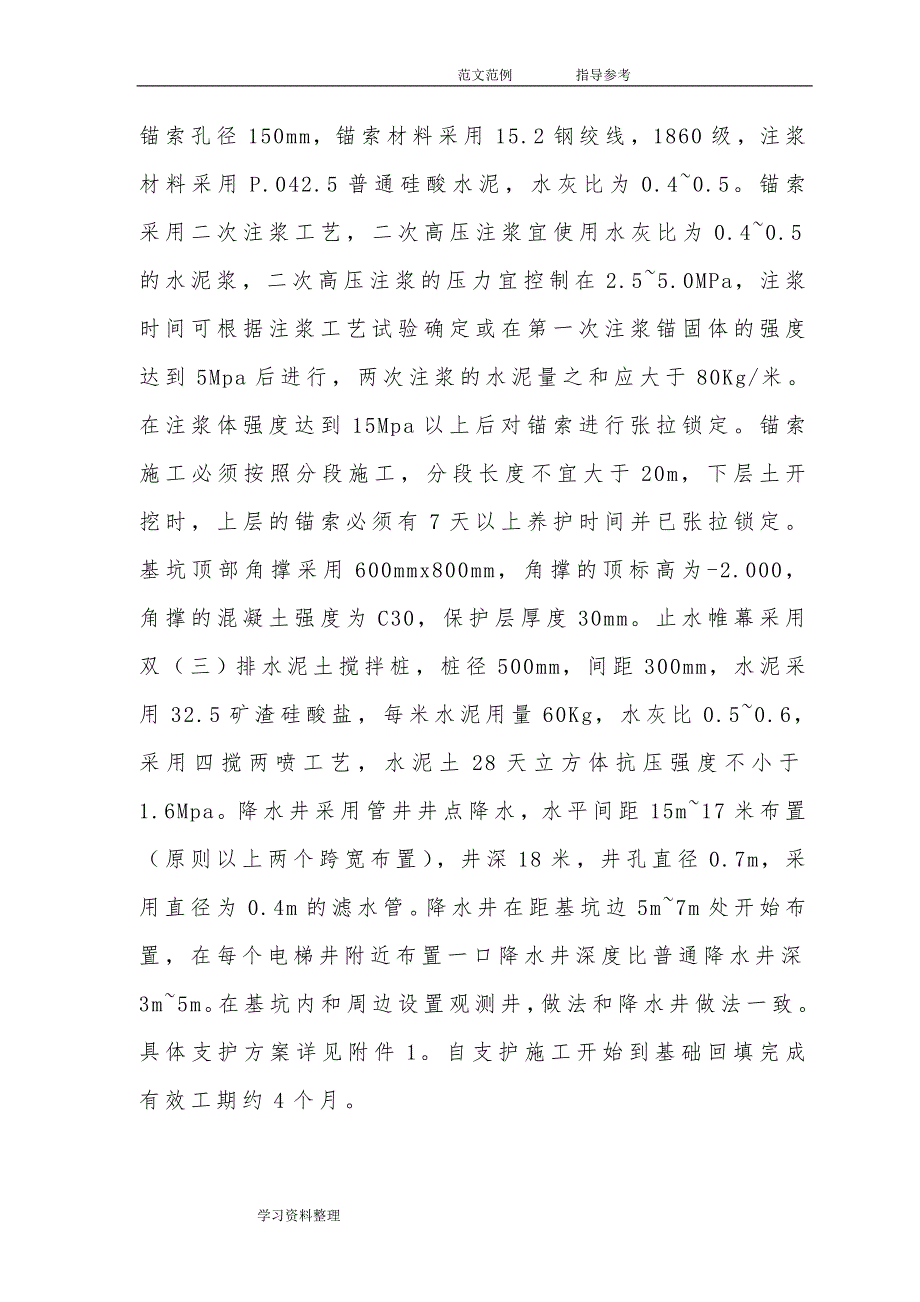 范文范例 指导参考
锚索孔径150mm，锚索材料采用15.2钢绞线，1860级，注浆
材料采用P.042.5普通硅酸水泥，水灰比为0.4~0.5。锚索
采用二次注浆工艺，二次高压注浆宜使用水灰比为0.4~0.5
的水泥浆，二次高压注浆的压力宜控制在2.5~5.0MPa，注浆
时间可根据注浆工艺试验确定或在第一次注浆锚固体的强度
达到5Mpa后进行，两次注浆的水泥量之和应大于80Kg/米。
在注浆体强度达到15Mpa以上后对锚索进行张拉锁定。锚索
施工必须按照分段施工，分段长度不宜大于20m，下层土开
挖时，上层的锚索必须有7天以上养护时间并已张拉锁定。
基坑顶部角撑采用600mmx800mm，角撑的顶标高为-2.000，
角撑的混凝土强度为C30，保护层厚度30mm。止水帷幕采用
双（三）排水泥土搅拌桩，桩径500mm，间距300mm，水泥采
用32.5矿渣硅酸盐，每米水泥用量60Kg，水灰比0.5~0.6，
采用四搅两喷工艺，水泥土28天立方体抗压强度不小于
1.6Mpa。降水井采用管井井点降水，水平间距15m~17米布置
（原则以上两个跨宽布置），井深18米，井孔直径0.7m，采
用直径为0.4m的滤水管。降水井在距基坑边5m~7m处开始布
置，在每个电梯井附近布置一口降水井深度比普通降水井深
3m~5m。在基坑内和周边设置观测井，做法和降水井做法一致。
具体支护方案详见附件1。自支护施工开始到基础回填完成
有效工期约4个月。
学习资料整理